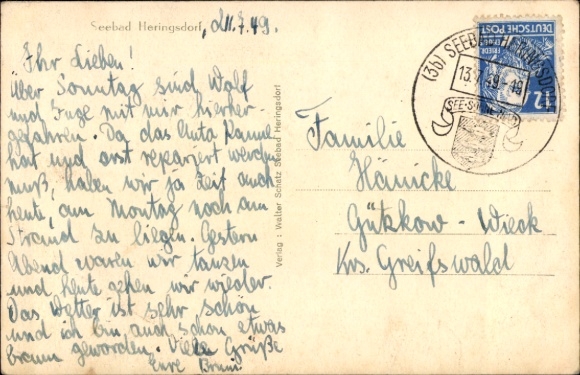 Seebad Heringsdorf, d. 11.7.49.
Ihr Lieben!
Über Sonntag sind Wolf
und Inge mit mir hierher-
gefahren. Da das Auto Panne
hat und erst repariert werden
muß, haben wir ja Zeit auch
heute, am Montag noch am
Strand zu liegen. Gestern
Abend waren wir tanzen
und heute gehen wir wieder.
Das Wetter ist sehr schön
und ich bin auch schon etwas
braun geworden. Viele Grüße
Eure Bruni
Verlag: Walter Schatz Seebad Heringsdorf
Familie
Hänicke
Gützkow-Wieck
Krs. Greifswald
(3b) SEEBAD HERINGSDORF
DEUTSCHE POST
12